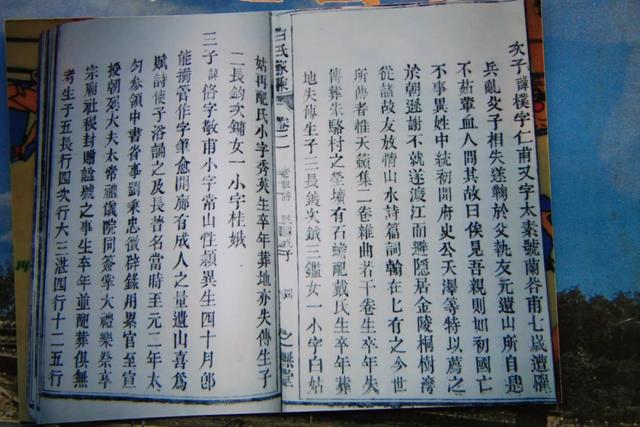 次子諱樸字仁甫又字太素號蘭谷甫七歲遭罹
兵亂父子相失遂鞠於父執友元遺山所自是
不茹葷血人問其故曰俟見吾親則如初國亡
不事異姓中統初開府史公天澤等特以薦之
於朝遜謝不就遂渡江而避隱居金陵桐樹灣
從諸故友放情山水詩篇詞翰在匕有之今世
所傳者惟天籟集二卷雜曲若干卷生卒年失
傳葬朱駱村之塋墳有石蟾配戴氏生卒年葬
地失傳生子三長鐵次鉞三鑑女一小字白姑
白氏家乘 卷一
姑再配氏小字秀英生卒年葬地亦失傳生子
二長鈞次鏞女一小字桂娥
三子諱恪字敬甫小字常山性穎異生四十月郎
能搦管作字筆愈開廊有成人之量遺山喜為
賦詩使子浴誦之及長著名當時至元二年太
勻參領中書省事劉秉忠徵辟錄用累官至宣
授朝列大夫太常禮儀院同簽掌大禮樂祭享
宗廟社稷封贈諡號之事生卒年並配葬俱無
考生子五長行四次行大三湛四行十二五行